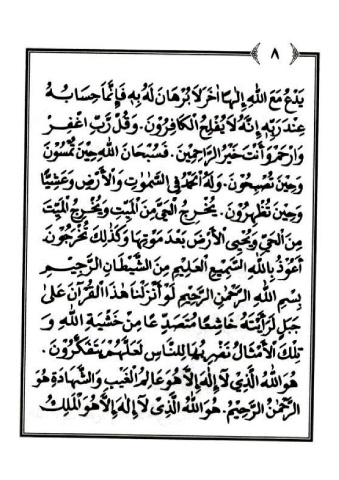 ٨
يَدْعُ مَعَ اللهِ إِلٰهًا آخَرَ لَا بُرْهَانَ لَهُ بِهِ فَإِنَّمَا حِسَابُهُ
عِنْدَ رَبِّهِ إِنَّهُ لَا يُفْلِحُ الْكَافِرُونَ. وَقُلْ رَبِّ اغْفِرْ
وَارْحَمْ وَأَنْتَ خَيْرُ الرَّاحِمِينَ. فَسُبْحَانَ اللهِ حِينَ تُمْسُونَ
وَحِينَ تُصْبِحُونَ. وَلَهُ الْحَمْدُ فِي السَّمٰوٰتِ وَالْأَرْضِ وَعَشِيًّا
وَحِينَ تُظْهِرُونَ. يُخْرِجُ الْحَيَّ مِنَ الْمَيِّتِ وَيُخْرِجُ الْمَيِّتَ
مِنَ الْحَيِّ وَيُحْيِي الْأَرْضَ بَعْدَ مَوْتِهَا وَكَذٰلِكَ تُخْرَجُونَ.
أَعُوذُ بِاللهِ السَّمِيعِ الْعَلِيمِ مِنَ الشَّيْطَانِ الرَّجِيمِ
بِسْمِ اللهِ الرَّحْمٰنِ الرَّحِيمِ لَوْ أَنْزَلْنَا هٰذَا الْقُرْآنَ عَلَىٰ
جَبَلٍ لَرَأَيْتَهُ خَاشِعًا مُتَصَدِّعًا مِنْ خَشْيَةِ اللهِ وَ
تِلْكَ الْأَمْثَالُ نَضْرِبُهَا لِلنَّاسِ لَعَلَّهُمْ يَتَفَكَّرُونَ.
هُوَ اللهُ الَّذِي لَا إِلٰهَ إِلَّا هُوَ عَالِمُ الْغَيْبِ وَالشَّهَادَةِ هُوَ
الرَّحْمٰنُ الرَّحِيمُ. هُوَ اللهُ الَّذِي لَا إِلٰهَ إِلَّا هُوَ الْمَلِكُ